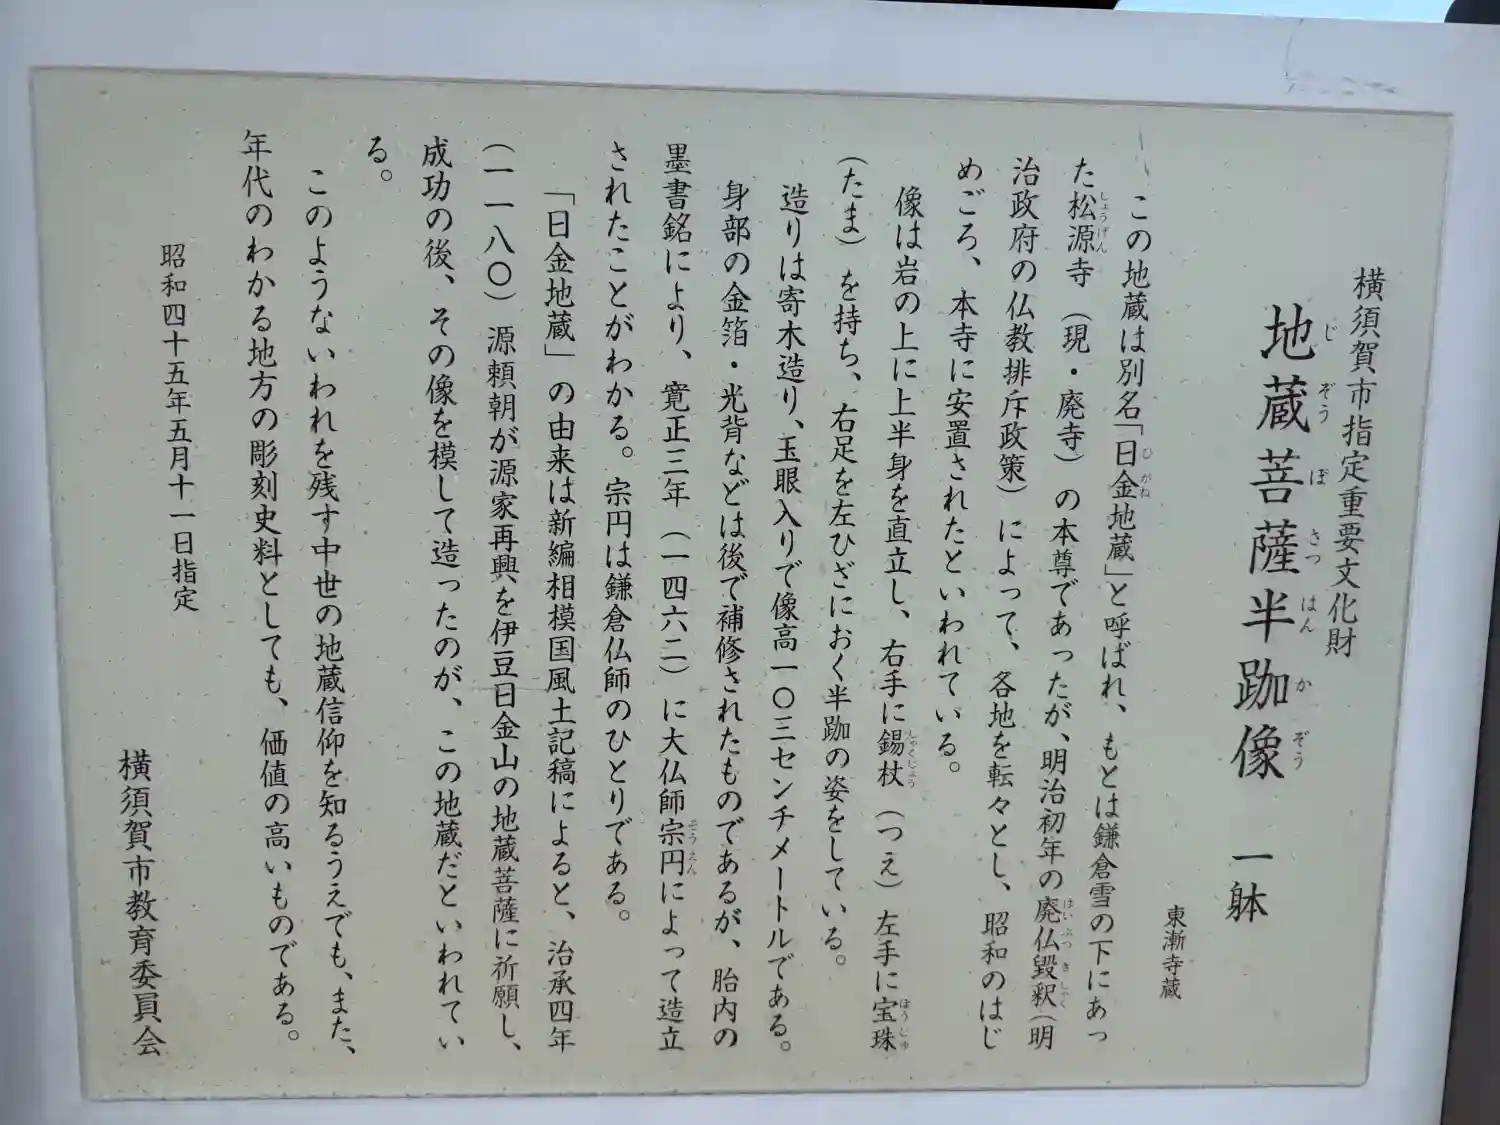 横須賀市指定重要文化財
地蔵菩薩半跏像 一躰
じ ぞう ぼ さつ はん か ぞう
東漸寺蔵
この地蔵は別名「日金地蔵」と呼ばれ、もとは鎌倉雪の下にあっ
ひ がね
た松源寺（現・廃寺）の本尊であったが、明治初年の廃仏毀釈（明
しょうげん はい ぶつ き しゃく
治政府の仏教排斥政策）によって、各地を転々とし、昭和のはじ
めごろ、本寺に安置されたといわれている。
像は岩の上に上半身を直立し、右手に錫杖（つえ）左手に宝珠
しゃくじょう ほうしゅ
（たま）を持ち、右足を左ひざにおく半跏の姿をしている。
造りは寄木造り、玉眼入りで像高一〇三センチメートルである。
身部の金箔・光背などは後で補修されたものであるが、胎内の
墨書銘により、寛正三年（一四六二）に大仏師宗円によって造立
そう えん
されたことがわかる。宗円は鎌倉仏師のひとりである。
「日金地蔵」の由来は新編相模国風土記稿によると、治承四年
（一一八〇）源頼朝が源家再興を伊豆日金山の地蔵菩薩に祈願し、
成功の後、その像を模して造ったのが、この地蔵だといわれてい
る。
このようないわれを残す中世の地蔵信仰を知るうえでも、また、
年代のわかる地方の彫刻史料としても、価値の高いものである。
昭和四十五年五月十一日指定
横須賀市教育委員会